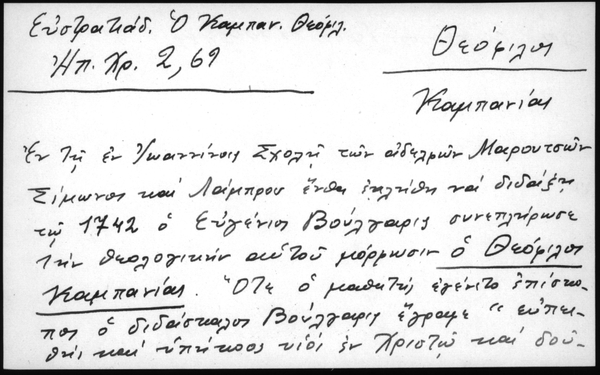 Εὐστρατιάδ. Ὁ Καμπαν. Θεόφιλ.
Ἠπ. Χρ. 2, 69
Θεόφιλος
Καμπανίας
Ἐν τῇ ἐν Ἰωαννίνοις Σχολῇ τῶν ἀδελφῶν Μαρουτσῶν
Σίμωνος καὶ Λάμπρου ἔνθα ἐκλήθη νὰ διδάξῃ
τῷ 1742 ὁ Εὐγένιος Βούλγαρις συνεπλήρωσε
τὴν θεολογικὴν αὐτοῦ μόρφωσιν ὁ Θεόφιλος
Καμπανίας. Ὅτε ὁ μαθητὴς ἐγένετο ἐπίσκο-
πος ὁ διδάσκαλος Βούλγαρις ἔγραφε "εὐπει-
θὴς καὶ ὑπήκοος υἱὸς ἐν Χριστῷ καὶ δοῦ-